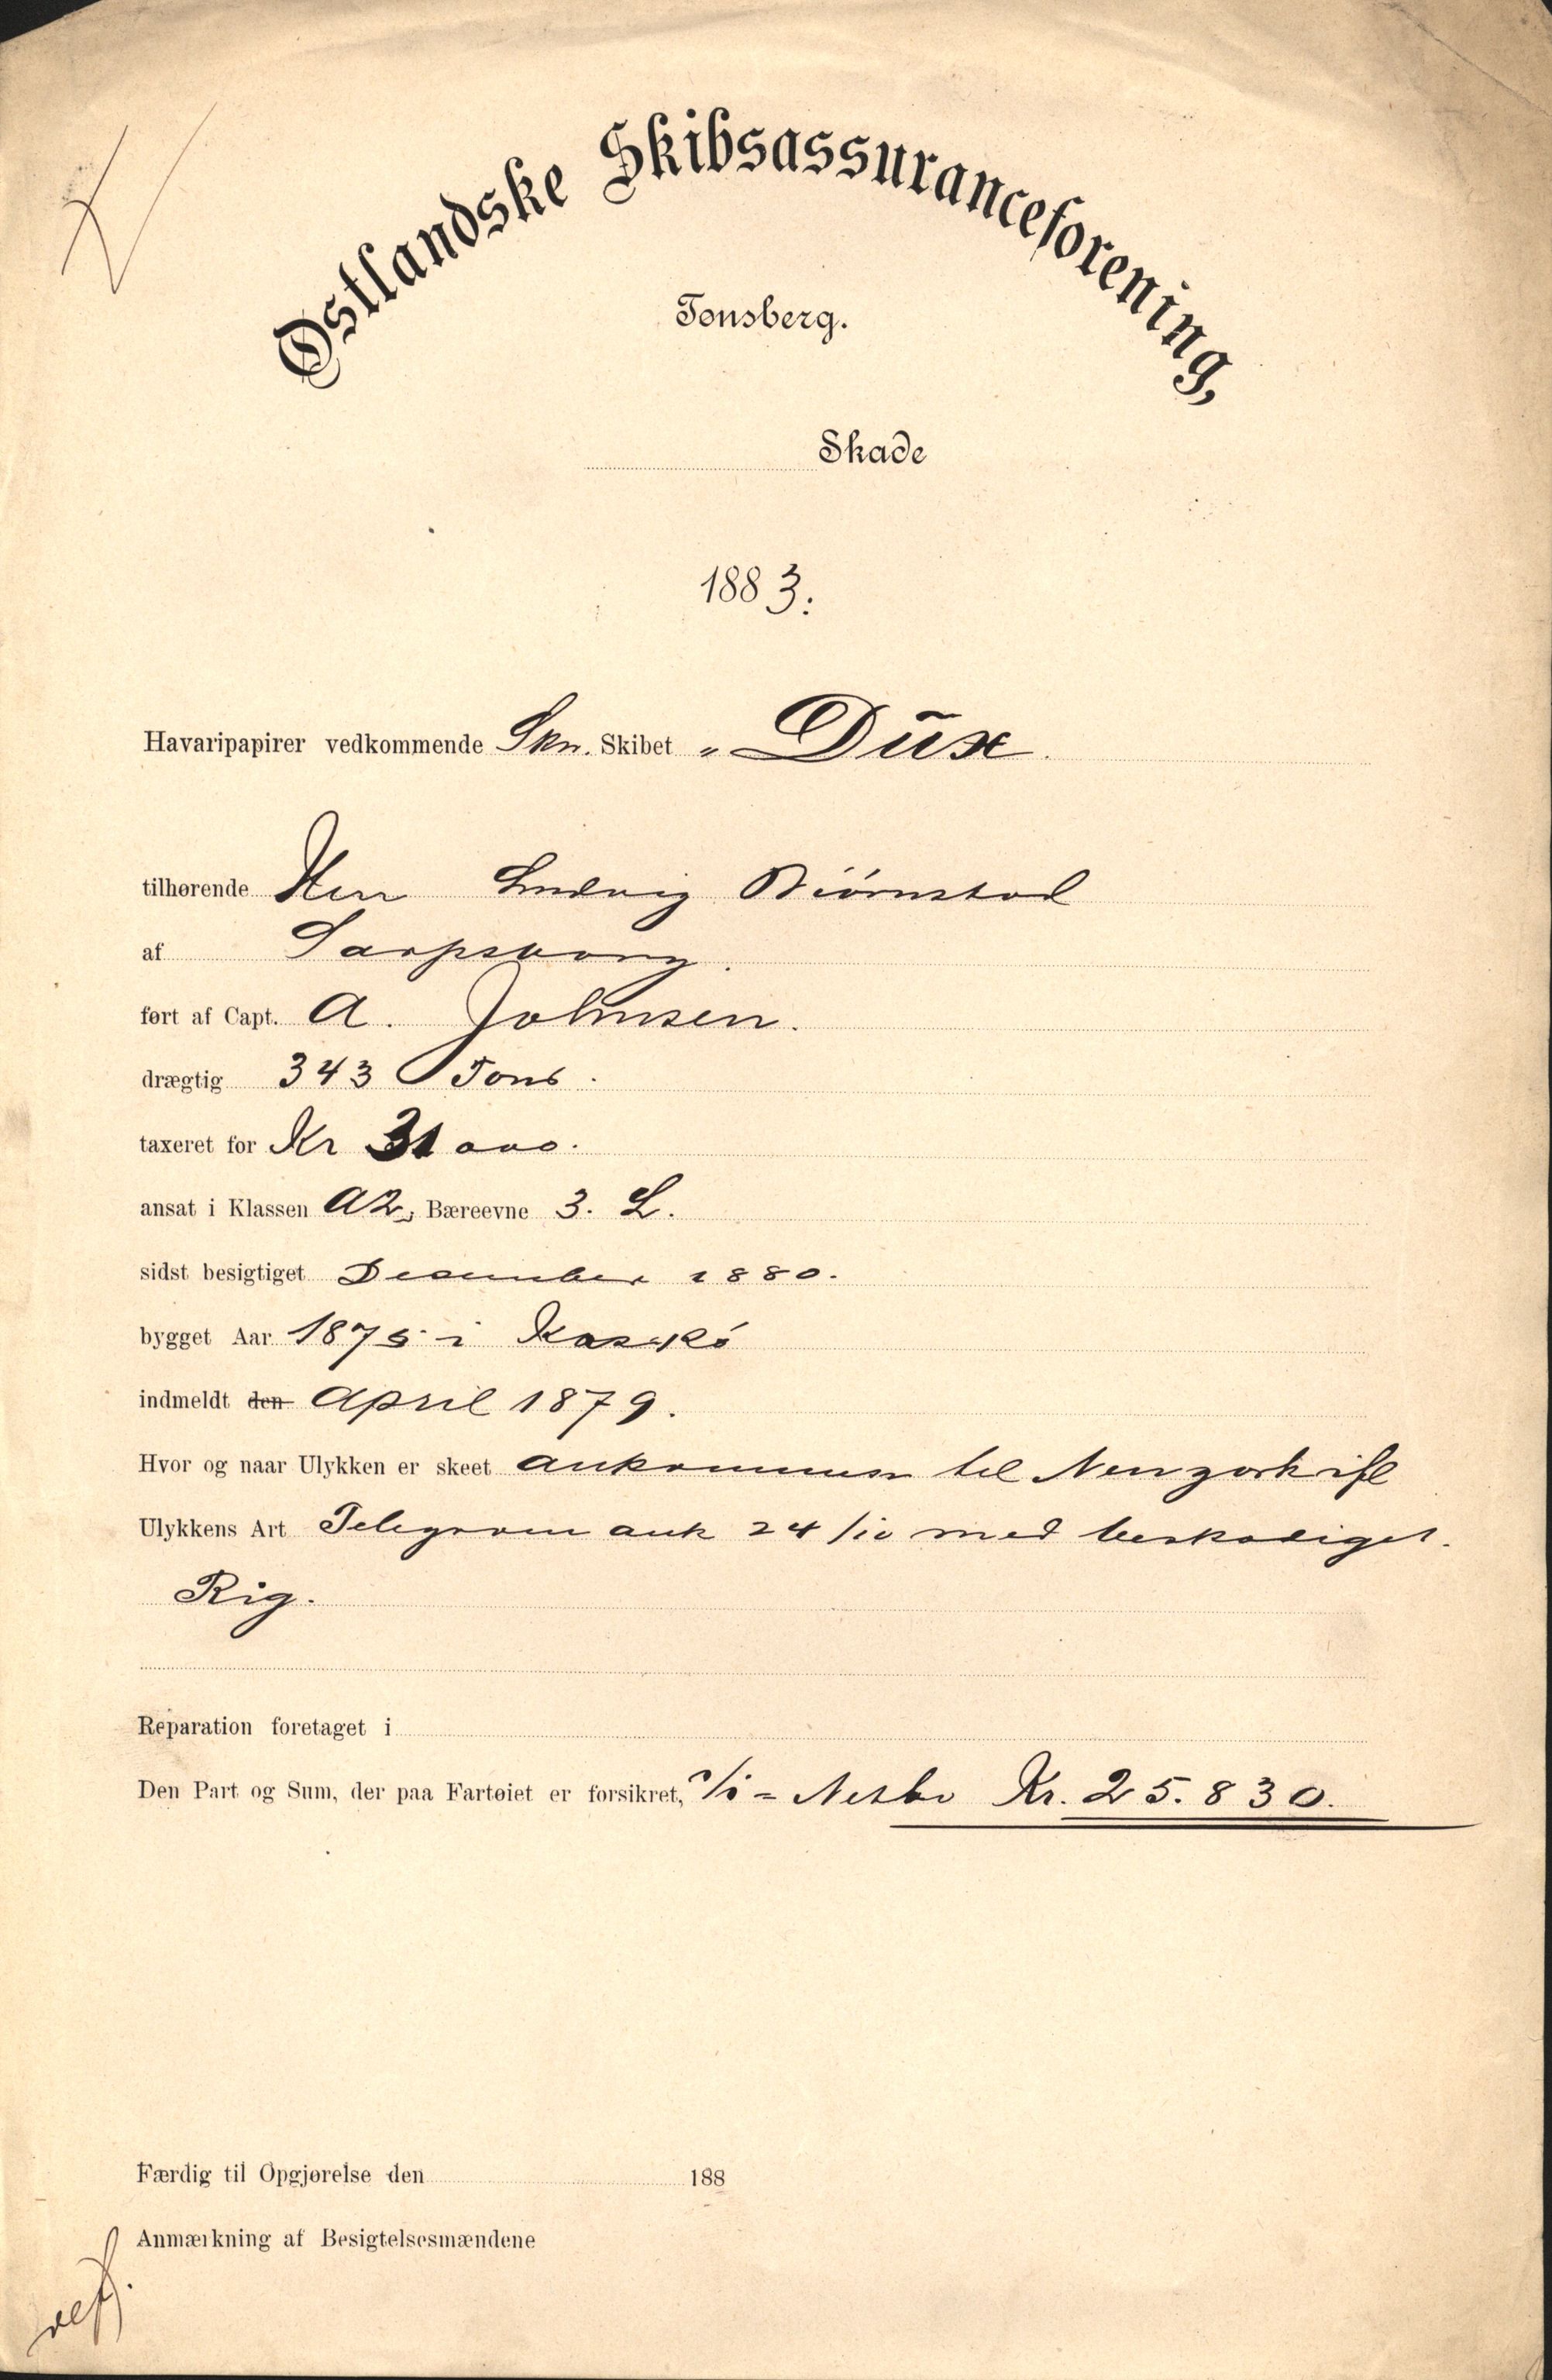 Østlandske Skibsassuranceforening,
Tønsberg.
Skade
1883.
Havaripapirer vedkommende Skn. Skibet „ Dŭx
tilhørende Herr Ludvig Biørnstad
af Sarpsborg.
ført af Capt. A. Johnsen.
drægtig 343 Tons.
taxeret for Kr 31000.
ansat i Klassen A2, Bæreevne 3. L.
sidst besigtiget December 1880.
bygget Aar 1875 i Kaskø
indmeldt den April 1879.
Hvor og naar Ulykken er skeet ankommen til Newyork ifl
Ulykkens Art Telegram ank 24/10 med beskadiget.
Rig.
Reparation foretaget i
Den Part og Sum, der paa Fartøiet er forsikret, 1/1 = Netto Kr. 25.830.
Færdig til Opgjørelse den 188
Anmærkning af Besigtelsesmændene